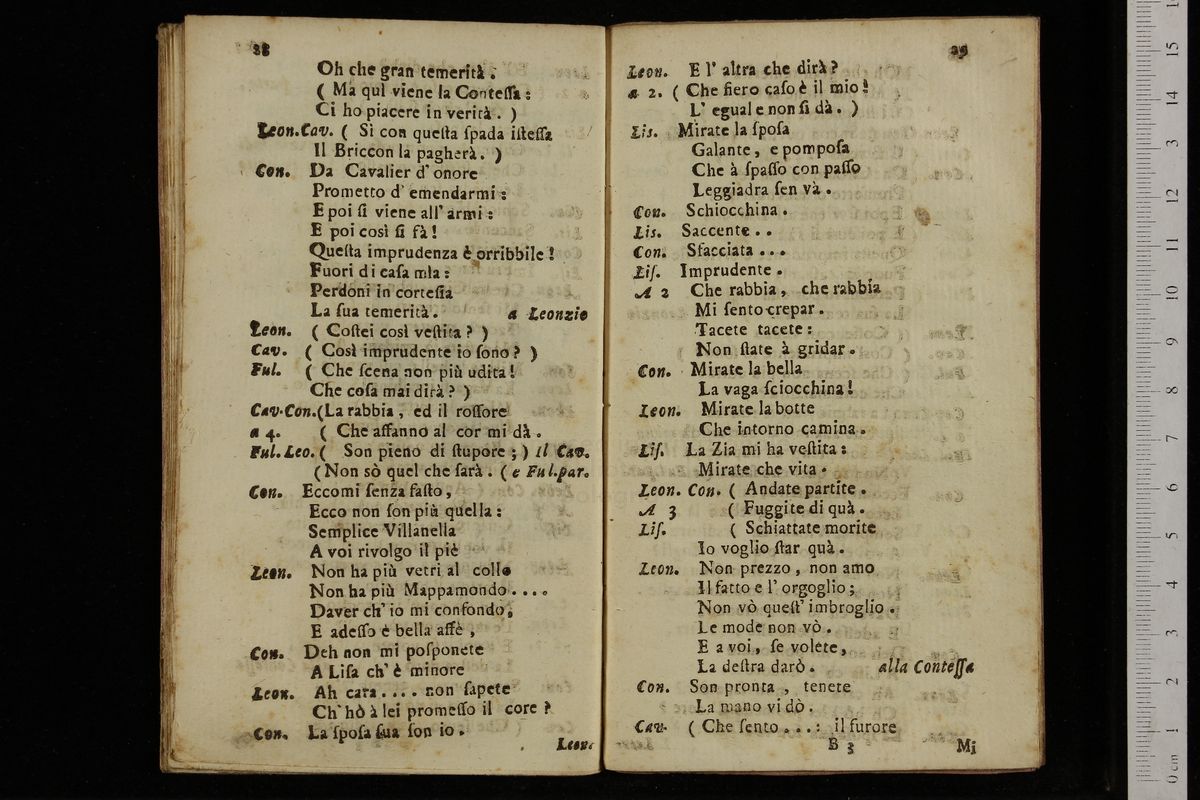 38
Oh che gran temerità.
( Ma quì viene la Conteſſa:
Ci ho piacere in verità. )
Leon.Cav. ( Sì con queſta ſpada iſteſſa
Il Briccon la pagherà. )
Con. Da Cavalier d' onore
Prometto d' emendarmi:
E poi ſi viene all' armi:
E poi così ſi fà!
Queſta imprudenza è orribbile!
Fuori di caſa mia:
Perdoni in corteſia
La ſua temerità. a Leonzio
Leon. ( Coſtei così veſtita? )
Cav. ( Così imprudente io ſono? )
Ful. ( Che ſcena non più udita!
Che coſa mai dirà? )
Cav.Con.(La rabbia, ed il roſſore
a 4. ( Che affanno al cor mi dà.
Ful.Leo. ( Son pieno di ſtupore;) Il Cav.
(Non sò quel che ſarà. (e Ful.par.
Con. Eccomi ſenza faſto,
Ecco non ſon più quella:
Semplice Villanella
A voi rivolgo il piè
Leon. Non ha più vetri al collo
Non ha più Mappamondo....
Daver ch' io mi confondo,
E adeſſo è bella affè,
Con. Deh non mi poſponete
A Liſa ch' è minore
Leon. Ah cara.... non ſapete
Ch' hò à lei promeſſo il core?
Con. La ſpoſa ſua ſon io.
Leon.
39
Leon. E l' altra che dirà?
a 2. ( Che fiero caſo è il mio!
L' egual e non ſi dà. )
Lis. Mirate la ſpoſa
Galante, e pompoſa
Che à ſpaſſo con paſſo
Leggiadra ſen và.
Con. Schiocchina.
Lis. Saccente..
Con. Sfacciata...
Liſ. Imprudente.
A 2 Che rabbia, che rabbia
Mi ſento crepar.
Tacete tacete:
Non ſtate à gridar.
Con. Mirate la bella
La vaga ſciocchina!
Leon. Mirate la botte
Che intorno camina.
Liſ. La Zia mi ha veſtita:
Mirate che vita.
Leon. Con. ( Andate partite.
A 3 ( Fuggite di quà.
Liſ. ( Schiattate morite
Io voglio ſtar quà.
Leon. Non prezzo, non amo
Il fatto e l' orgoglio;
Non vò queſt' imbroglio.
Le mode non vò.
E a voi, ſe volete,
La deſtra darò. alla Conteſſa
Con. Son pronta, tenete
La mano vi dò.
Cav. ( Che ſento...: il furore
B 3 Mi